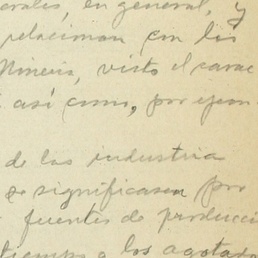 erales, en general, y
relacionan con los
Mineria, visto el carac
así como, por ejem
de las industria
se significasen por
fuentes de producci
tiempo a los agotado